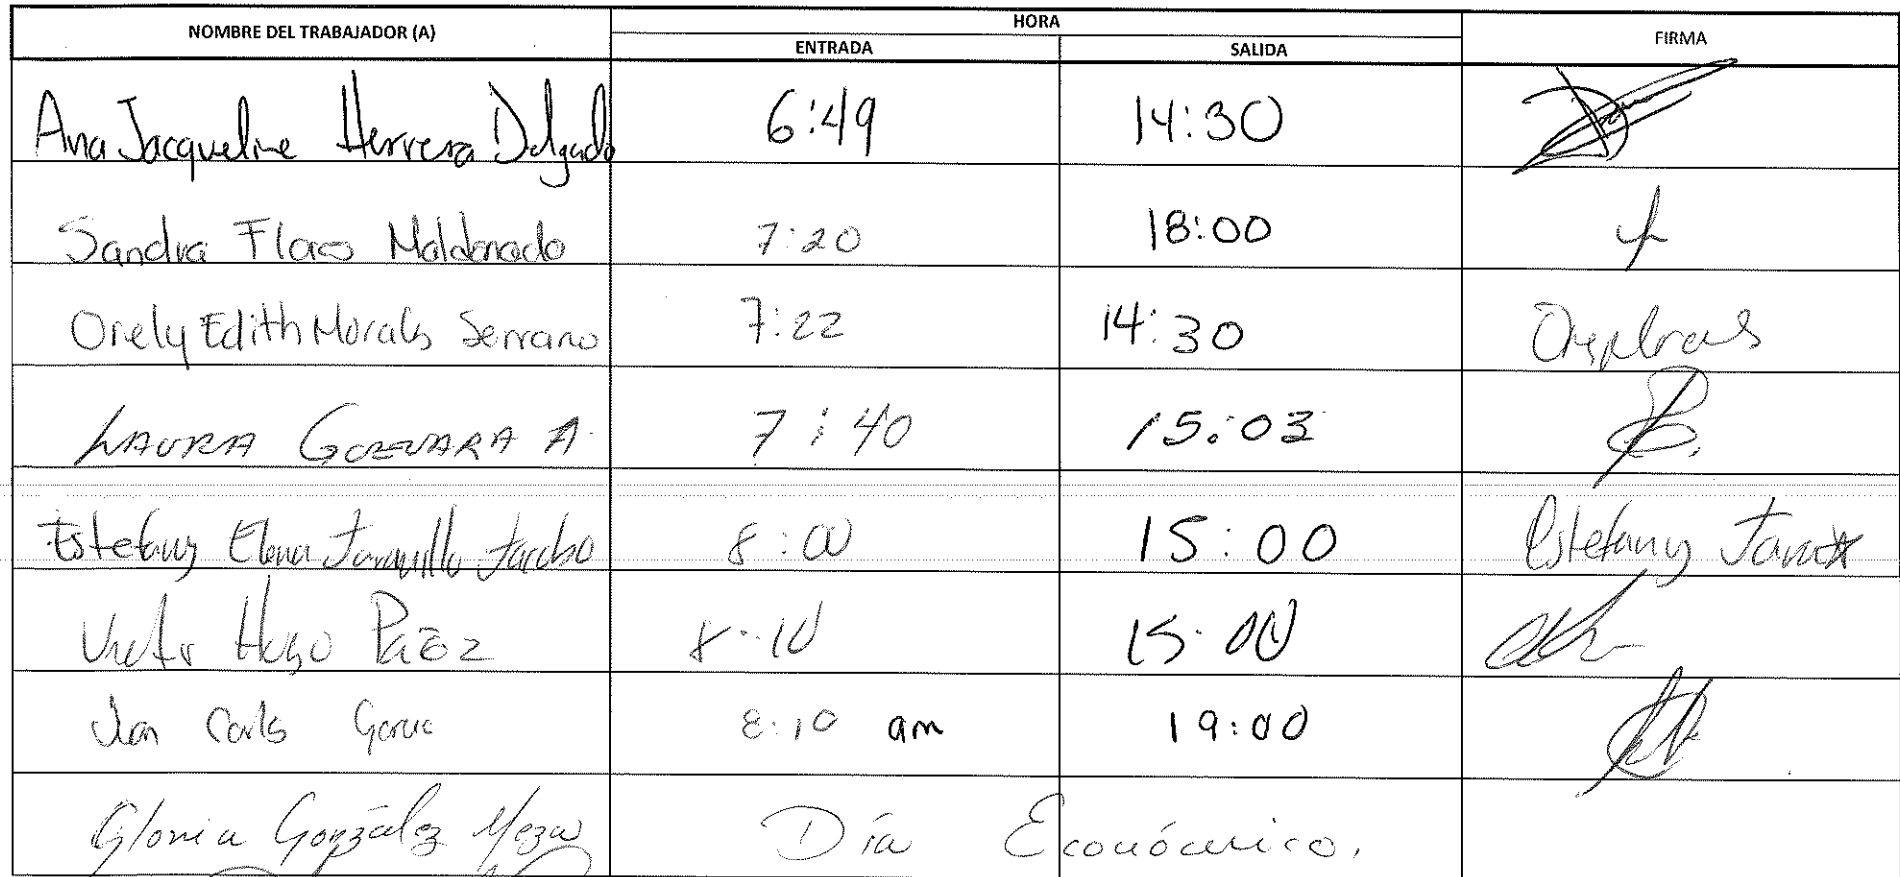 NOMBRE DEL TRABAJADOR (A) HORA FIRMA
ENTRADA SALIDA
Ana Jacqueline Herrera Delgado 6:49 14:30
Sandra Flores Maldonado 7:20 18:00
Orely Edith Morales Serrano 7:22 14:30
LAURA GUEVARA A. 7:40 15:03
Estefany Elena Jaramillo Jacobo 8:00 15:00 Estefany
Victor Hugo Páez 8:10 15:00
Juan Carlos Garcia 8:10 am 19:00
Gloria González Meza Día Económico.